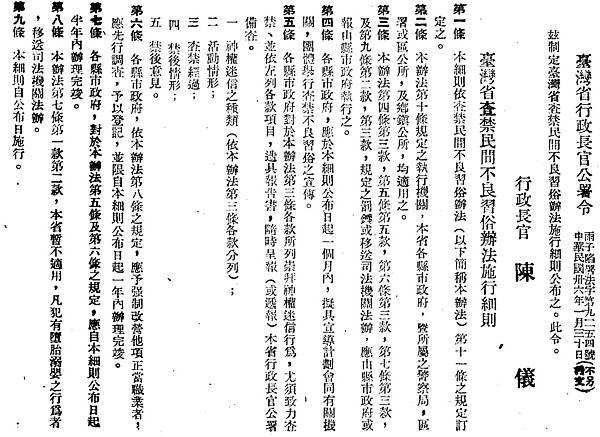 臺灣省行政長官公署令
中華民國卅六年一月三十日
茲制定臺灣省查禁民間不良習俗辦法施行細則公布之。此令。
行政長官　陳　儀
臺灣省查禁民間不良習俗辦法施行細則
第一條　本細則依查禁民間不良習俗辦法（以下簡稱本辦法）第十一條之規定訂
定之。
第二條　本辦法第十條規定之執行機關，本省各縣市政府，暨所屬之警察局，區
署或區公所，及鄉鎮公所，均適用之。
第三條　本辦法第四條第三款，第五條第五款，第六條第三款，第七條第三款，
及第九條第二款，第三款，規定之罰鍰或移送司法機關法辦，應由縣市政府或
報由縣市政府執行之。
第四條　各縣市政府，應於本細則公布日起一個月內，擬具宣導計劃會同有關機
關，團體舉行查禁不良習俗之宣傳。
第五條　各縣市政府對於本辦法第三條各款所列崇拜神權迷信行為，尤須致力查
禁、並依左列各款項目，造具報告書，隨時呈報（或遞報）本省行政長官公署
備查。
一　神權迷信之種類（依本辦法第三條各款分列）；
二　活動情形；
三　查禁經過；
四　禁後情形；
五　禁後意見。
第六條　各縣市政府，依本辦法第八條之規定，應予强制改營他項正當職業者，
應先行調查，予以登記，並限自本細則公布日起一年內辦理完竣。
第七條　各縣市政府，對於本辦法第五條及第六條之規定，應自本細則公布日起
半年內辦理完竣。
第八條　本辦法第七條第一款第二款，本省暫不適用，凡犯有墮胎溺嬰之行為者
，移送司法機關法辦。
第九條　本細則自公布日施行。